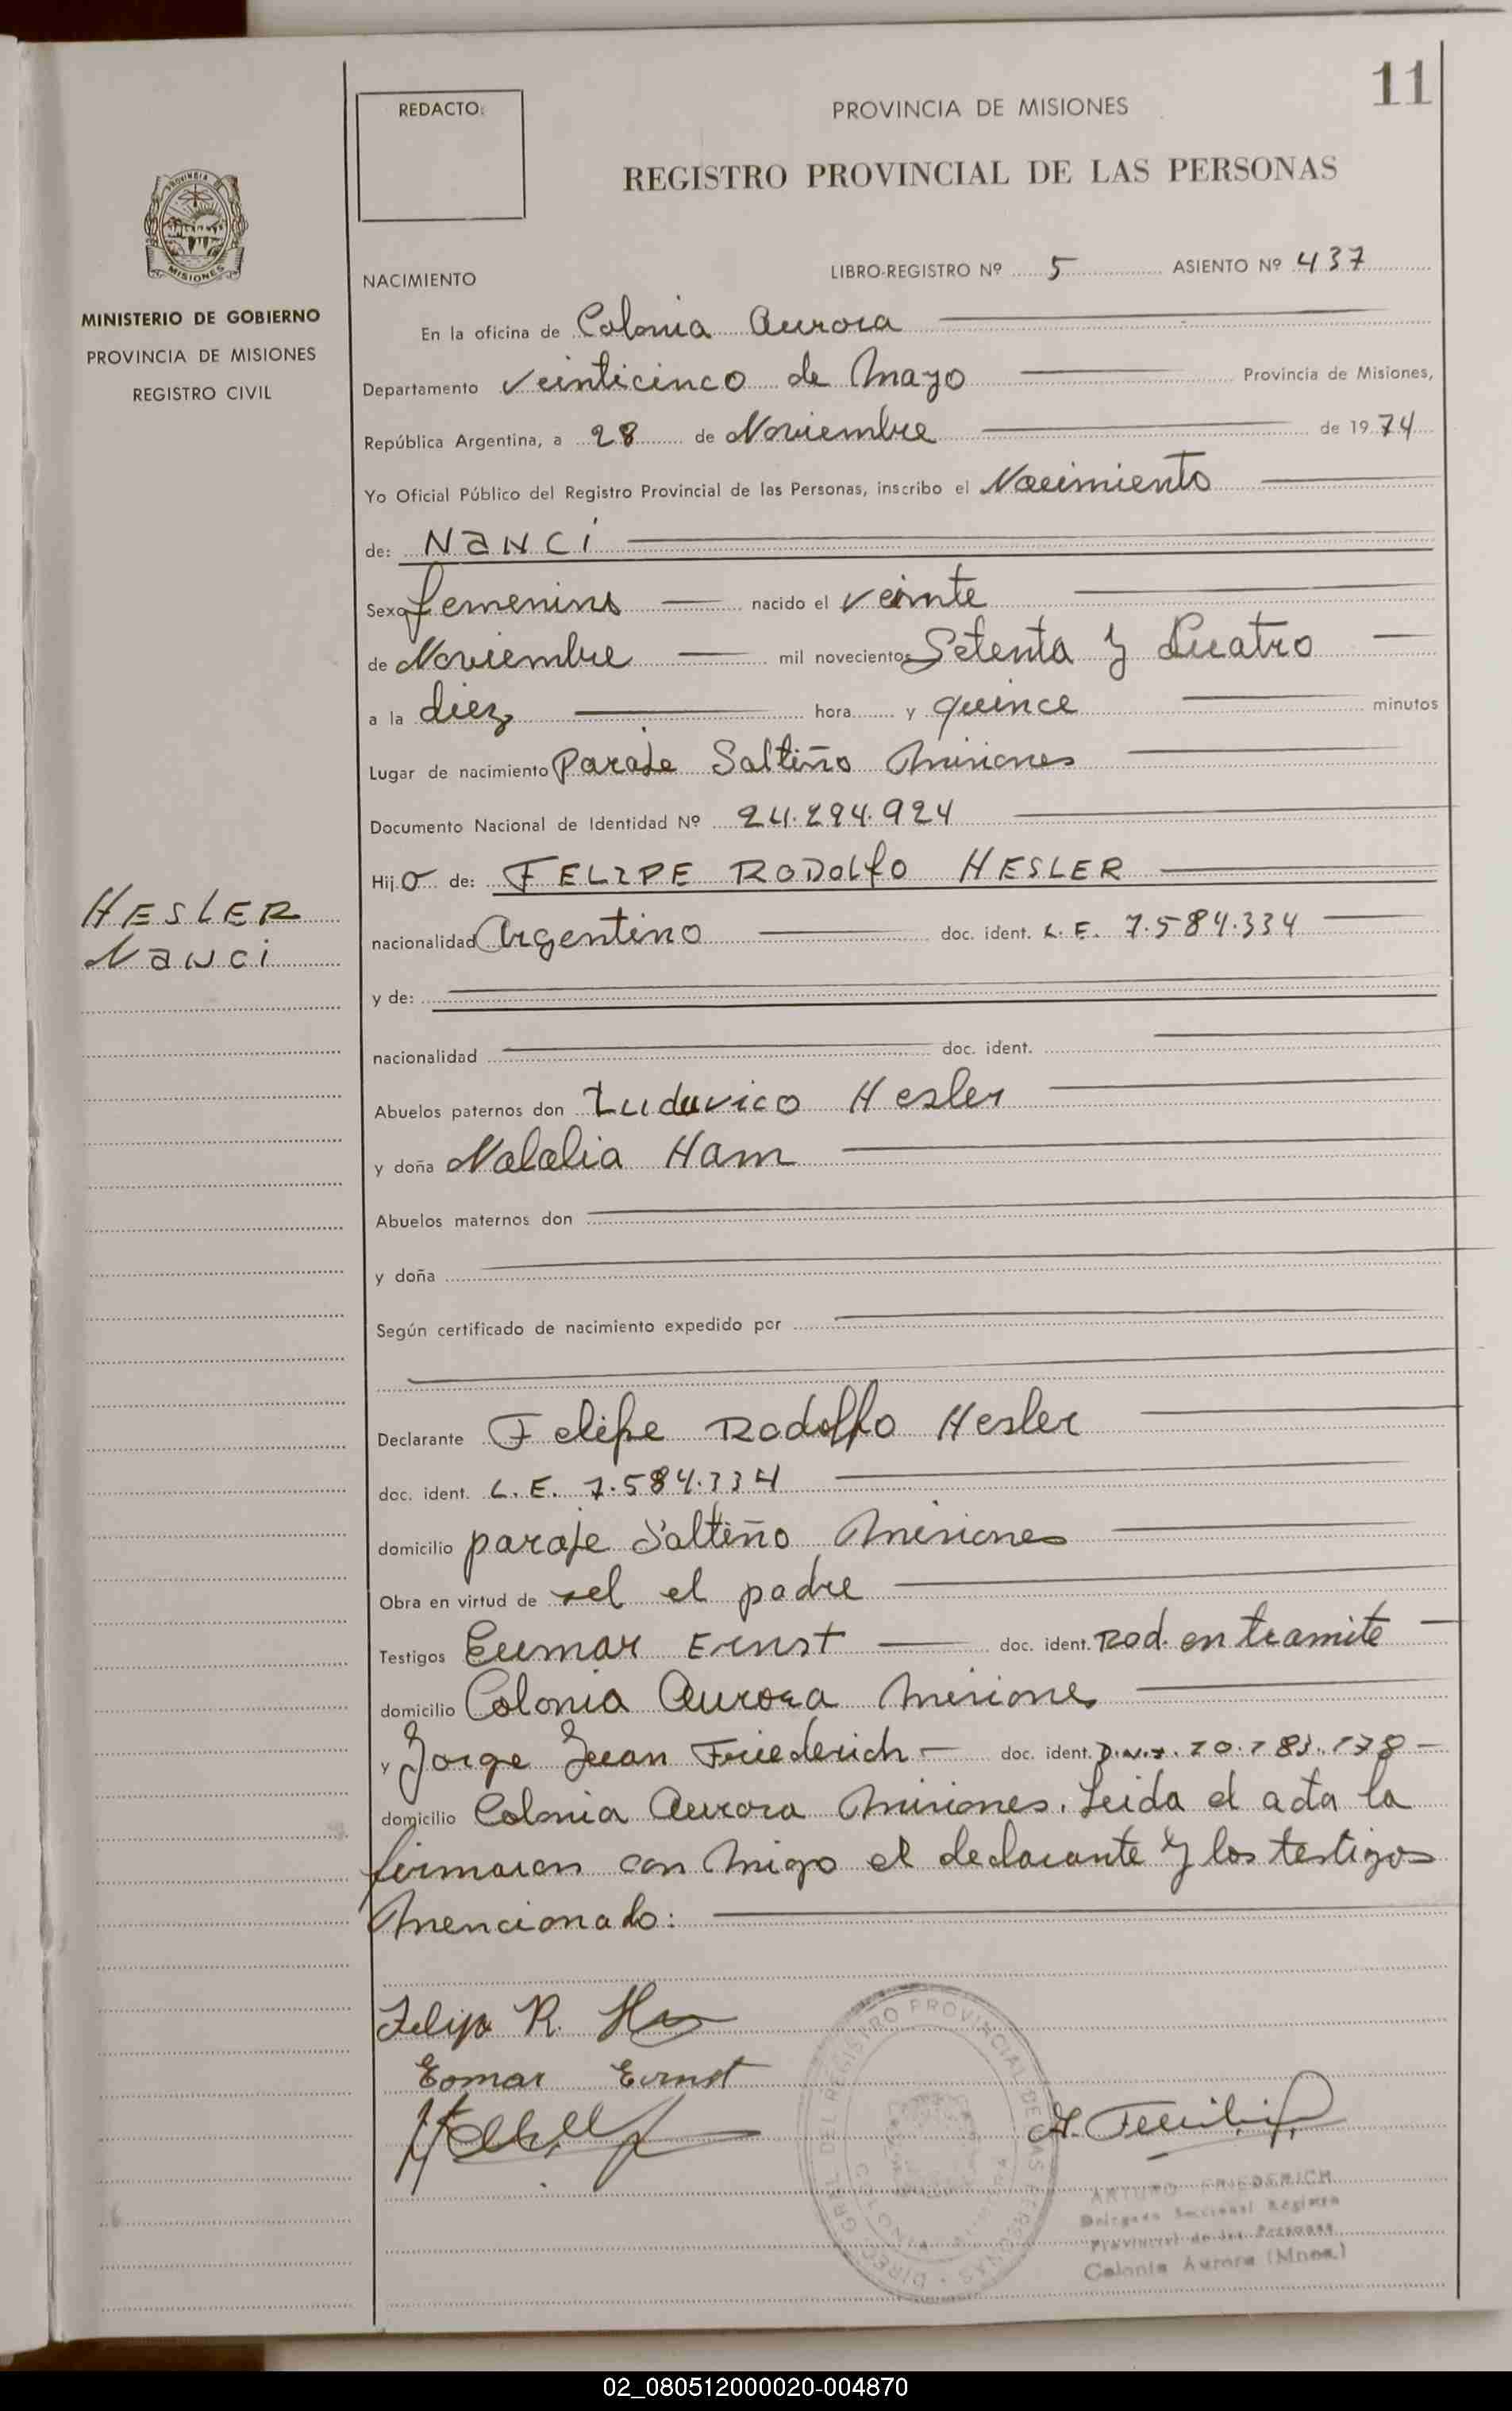 11
REDACTO:
PROVINCIA DE MISIONES
REGISTRO PROVINCIAL DE LAS PERSONAS
MISIONES
MINISTERIO DE GOBIERNO
PROVINCIA DE MISIONES
REGISTRO CIVIL
NACIMIENTO
LIBRO-REGISTRO Nº 5 ASIENTO Nº 437
En la oficina de Colonia Aurora
Departamento Veinticinco de Mayo Provincia de Misiones,
República Argentina, a 28 de Noviembre de 1974
Yo Oficial Público del Registro Provincial de las Personas, inscribo el Nacimiento
de: NaNCi
Sexo femenino nacido el veinte
de Noviembre mil novecientos Setenta y Cuatro
a la diez hora y quince minutos
Lugar de nacimiento Paraje Saltiño Misiones
Documento Nacional de Identidad Nº 24.294.924
Hijo de: FELIPE RODOLfO HESLER
HESLER
Nanci
nacionalidad Argentino doc. ident. L. E. 7.584.334
y de:
nacionalidad doc. ident.
Abuelos paternos don Luduvico Hesler
y doña Natalia Ham
Abuelos maternos don
y doña
Según certificado de nacimiento expedido por
Declarante Felipe Rodolfo Hesler
doc. ident. L. E. 7.584.334
domicilio paraje Saltiño Misiones
Obra en virtud de sel el padre
Testigos Eumar Ernst doc. ident. Rod. en tramite
domicilio Colonia Aurora Misiones
y Jorge Juan Friederich doc. ident. D.N.I. 10.183.178
domicilio Colonia Aurora Misiones. Leida el acta la
firmaron con migo el declarante y los testigos
mencionado:
Felipe R.
Eomar Ernst
ARTURO FRIEDERICH
Delegado Seccional Registro
Provincial de las Personas
Colonia Aurora (Mnes.)
02_080512000020-004870